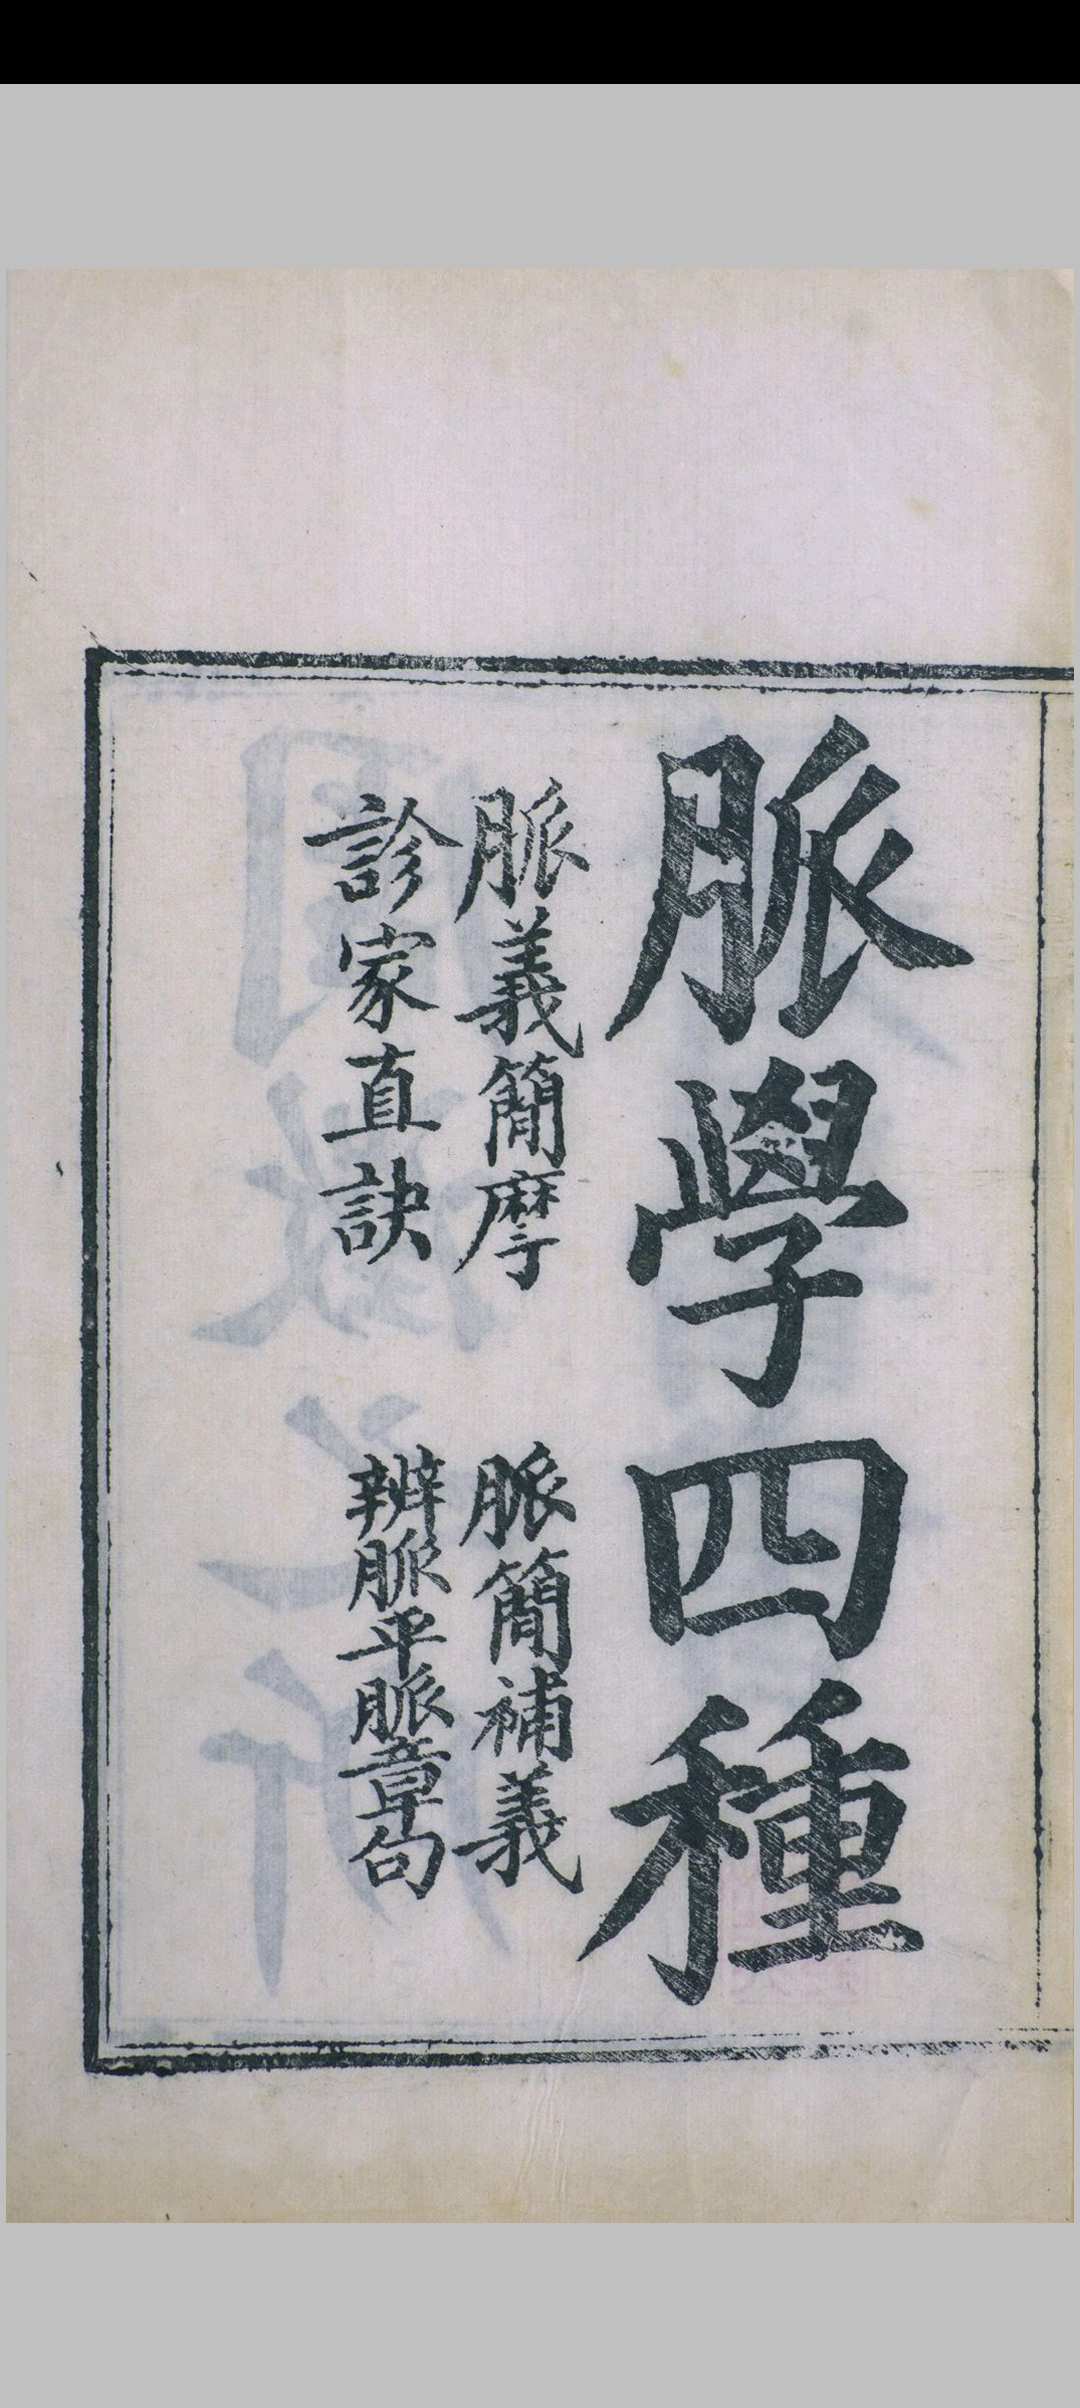 脈學四種
脈義簡摩
脈簡補義
診家直訣
辨脈平脈章句